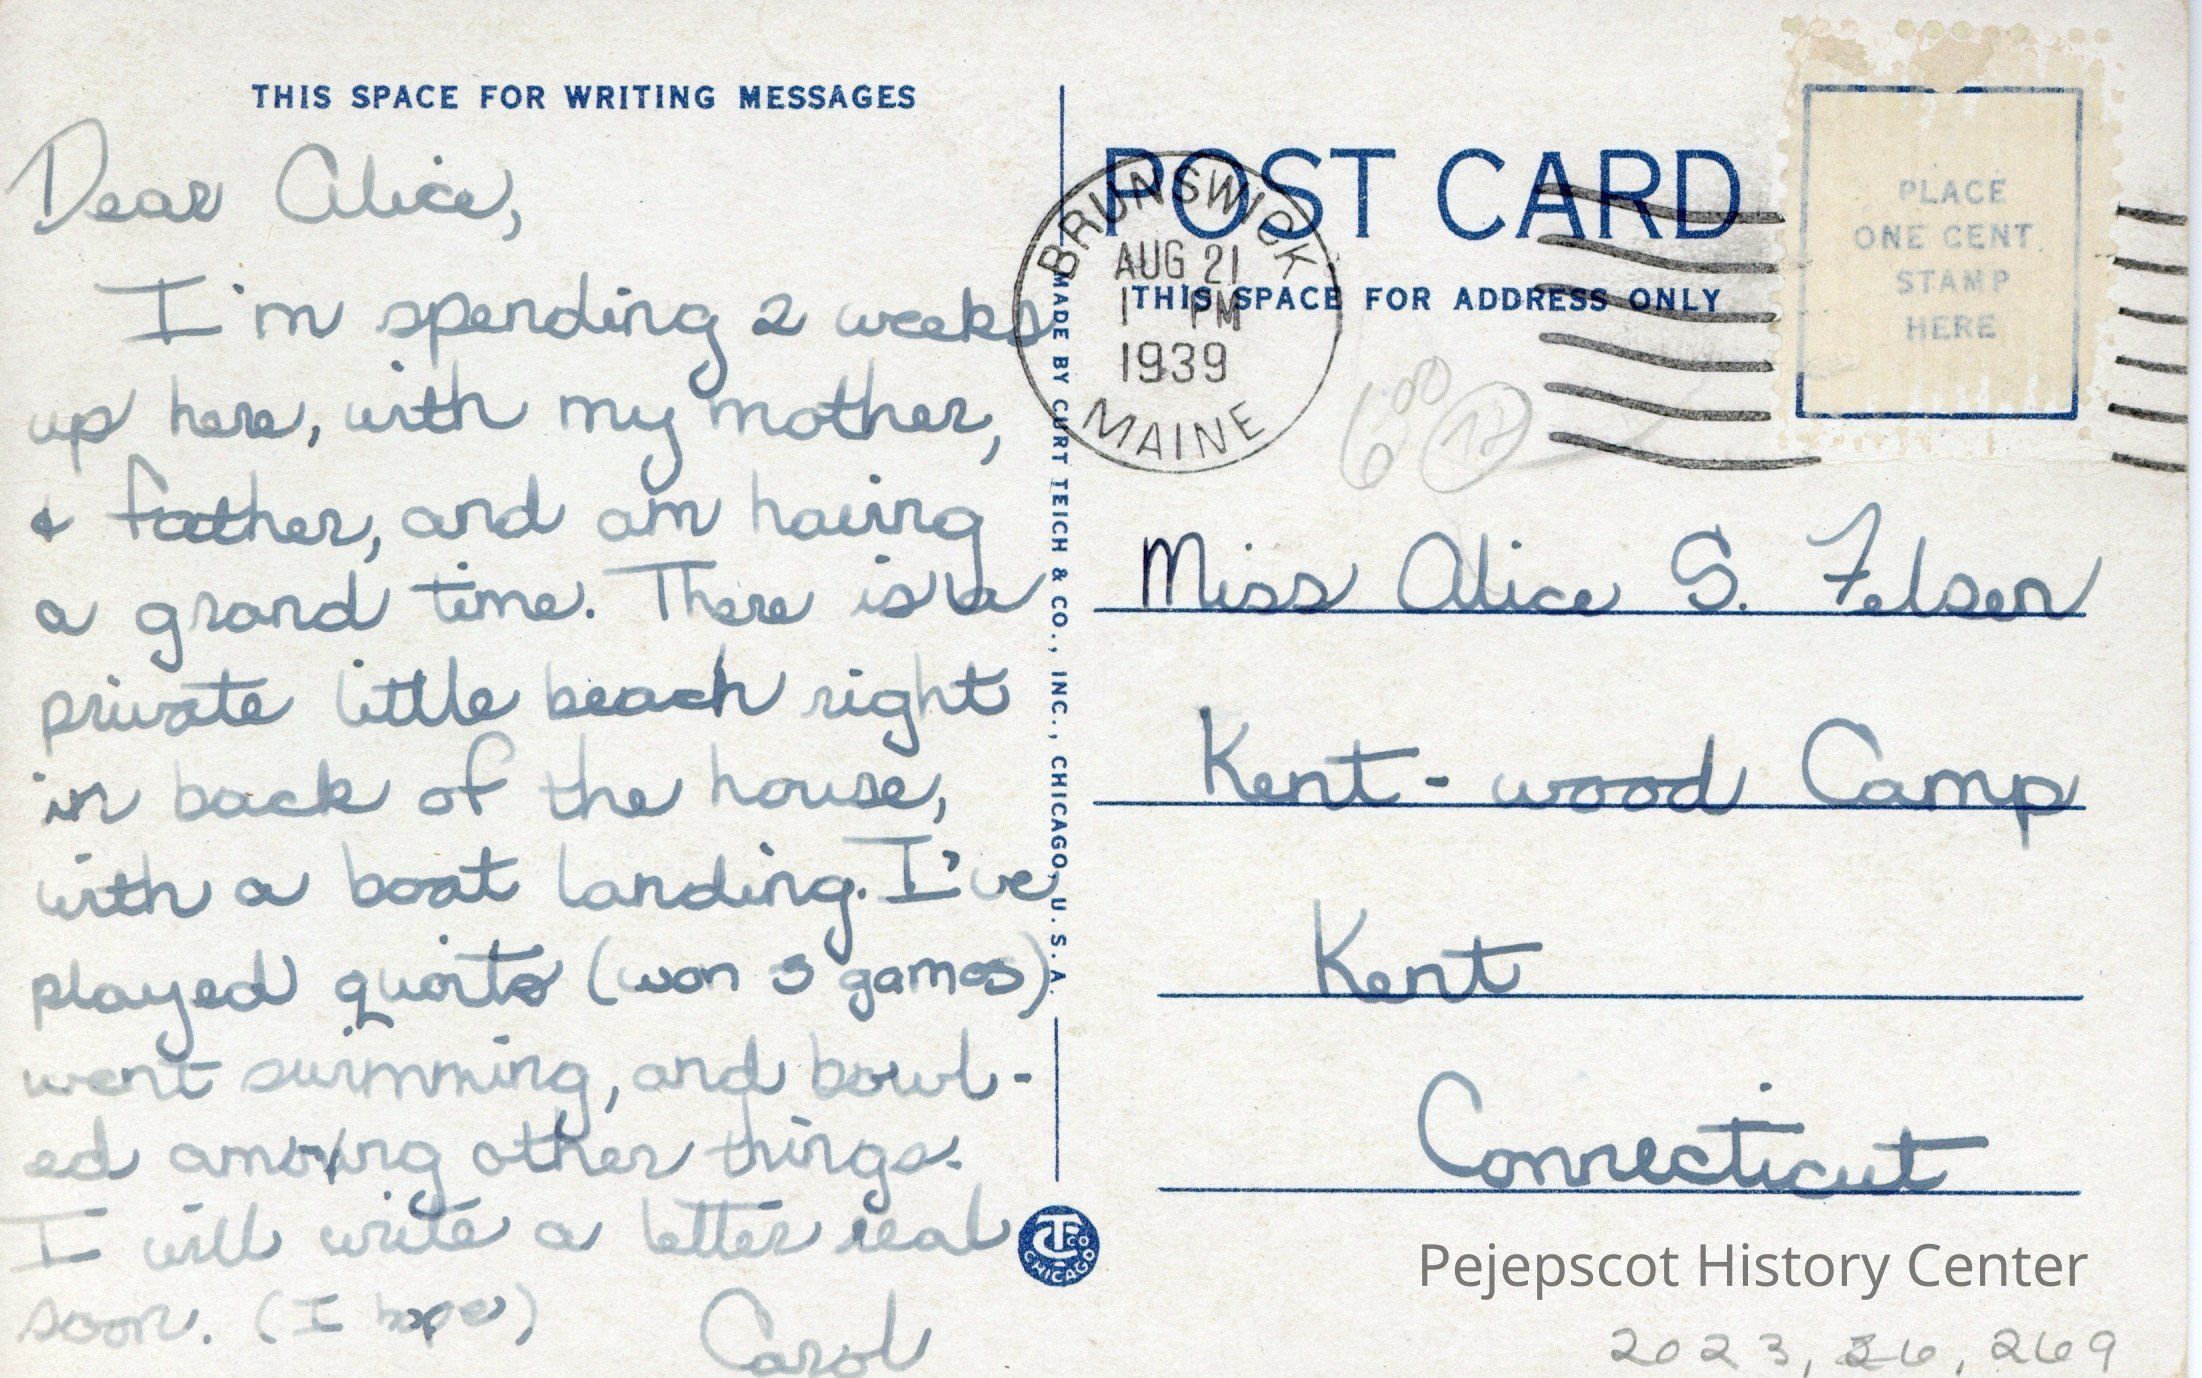 THIS SPACE FOR WRITING MESSAGES
Dear Alice,
I'm spending 2 weeks
up here, with my mother,
& father, and am having
a grand time. There is a
private little beach right
in back of the house,
with a boat landing. I've
played quoits (won 3 games)
went swimming, and bowl-
ed among other things.
I will write a letter real
soon. (I hope)
Carol
MADE BY CURT TEICH & CO., INC., CHICAGO, U.S.A.
C.T. CO
CHICAGO
POST CARD
THIS SPACE FOR ADDRESS ONLY
BRUNSWICK
AUG 21
1 PM
1939
MAINE
PLACE
ONE CENT
STAMP
HERE
6.00
17
Miss Alice S. Felsen
Kent-wood Camp
Kent
Connecticut
Pejepscot History Center
2023, 26, 269